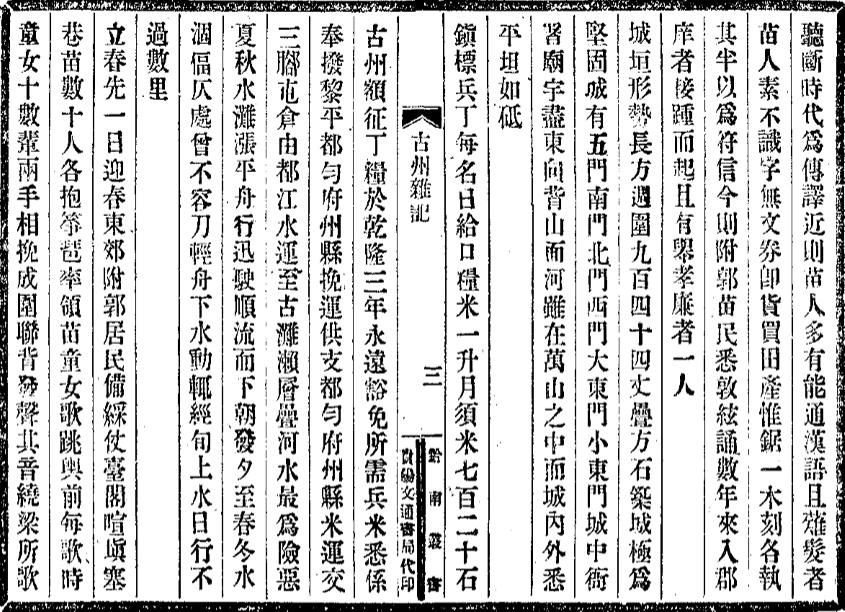 聽斷時代爲傳譯近則苗人多有能通漢語且薙髮者
苗人素不識字無文券卽貨買田產惟鋸一木刻各執
其半以爲符信今則附郭苗民悉敦絃誦數年來入郡
庠者接踵而起且有舉孝廉者一人
城垣形勢長方週圍九百四十四丈疊方石築城極爲
堅固城有五門南門北門西門大東門小東門城中衙
署廟宇盡東向背山面河雖在萬山之中而城內外悉
平坦如砥
鎮標兵丁每名日給口糧米一升月須米七百二十石
古州雜記
三
黔南叢書
貴陽文通書局代印
古州額征丁糧於乾隆三年永遠豁免所需兵米悉係
奉撥黎平都勻府州縣挽運供支都勻府州縣米運交
三腳屯倉由都江水運至古灘瀨層疊河水最爲險惡
夏秋水灘漲平舟行迅駛順流而下朝發夕至春冬水
涸偪仄處曾不容刀輕舟下水動輒經旬上水日行不
過數里
立春先一日迎春東郊附郭居民備綵仗臺閣喧塡塞
巷苗數十人各抱箏琶率領苗童女歌跳輿前每歌時
童女十數輩兩手相挽成圍聯背發聲其音繞梁所歌